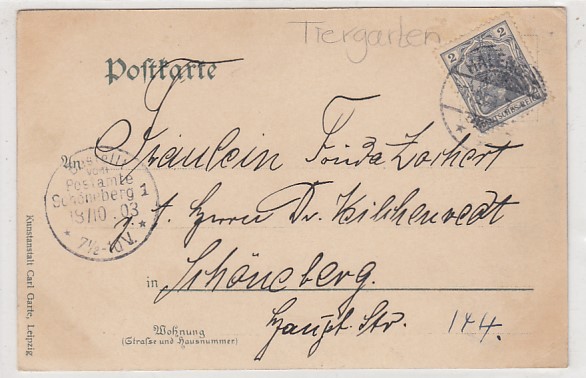 Tiergarten
Postkarte
2 2
HALENSEE
An
Fräulein Frida Zachert
Bestellt
vom
Postamte
Schöneberg 1
18/10. 03
* 7½-10V. *
z. H. Herrn Dr.
in
Schöneberg.
Haupt Str. 144.
Wohnung
(Straße und Hausnummer)
Kunstanstalt Carl Garte, Leipzig